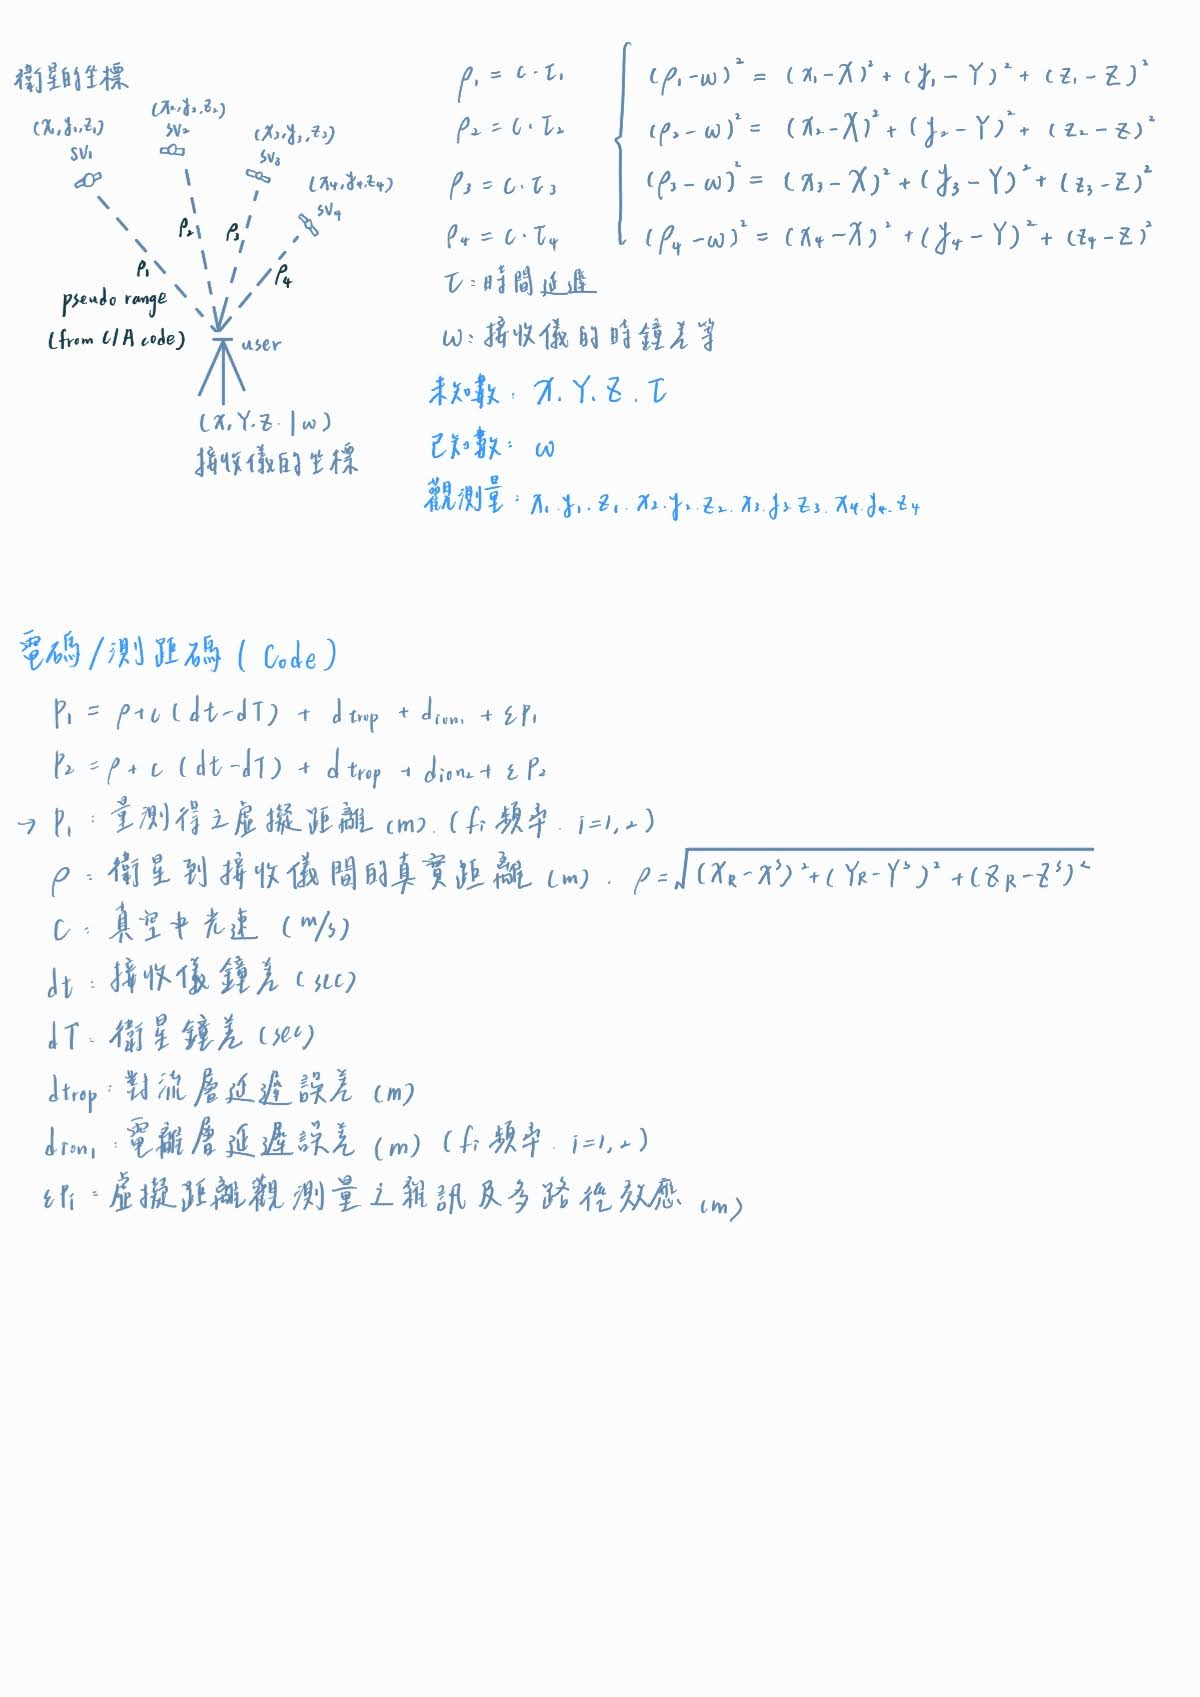 衛星的坐標
(x₁,y₁,z₁)
SV₁
(x₂,y₂,z₂)
SV₂
(x₃,y₃,z₃)
SV₃
(x₄,y₄,z₄)
SV₄
ρ₁
ρ₂
ρ₃
ρ₄
pseudo range
(from C/A code)
user
(X.Y.Z.|w)
接收儀的坐標
ρ₁ = c·τ₁
ρ₂ = c·τ₂
ρ₃ = c·τ₃
ρ₄ = c·τ₄
(ρ₁-w)² = (x₁-X)² + (y₁-Y)² + (z₁-Z)²
(ρ₂-w)² = (x₂-X)² + (y₂-Y)² + (z₂-Z)²
(ρ₃-w)² = (x₃-X)² + (y₃-Y)² + (z₃-Z)²
(ρ₄-w)² = (x₄-X)² + (y₄-Y)² + (z₄-Z)²
τ:時間延遲
w:接收儀的時鐘差等
未知數:X.Y.Z.τ
已知數:w
觀測量:x₁.y₁.z₁.x₂.y₂.z₂.x₃.y₃.z₃.x₄.y₄.z₄
電碼/測距碼(Code)
P₁ = ρ+c(dt-dT) + dtrop + dion₁ + εP₁
P₂ = ρ+c(dt-dT) + dtrop + dion₂ + εP₂
→ P₁:量測得之虛擬距離(m).(fi頻率.i=1,2)
ρ:衛星到接收儀間的真實距離(m).ρ=√(X_R-X^s)²+(Y_R-Y^s)²+(Z_R-Z^s)²
C:真空中光速(m/s)
dt:接收儀鐘差(sec)
dT:衛星鐘差(sec)
dtrop:對流層延遲誤差(m)
dion₁:電離層延遲誤差(m)(fi頻率.i=1,2)
εP₁:虛擬距離觀測量之雜訊及多路徑效應(m)